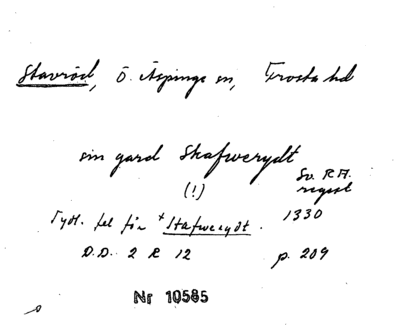 Stavröd, Ö. Äspinge sn, Frosta hd
sin gard Skafwerydt
(!)
Sv. R A.
regest
Tydl. fel för + Stafwerydt. 1330
D.D. 2 R 12 p. 209
Nr 10585